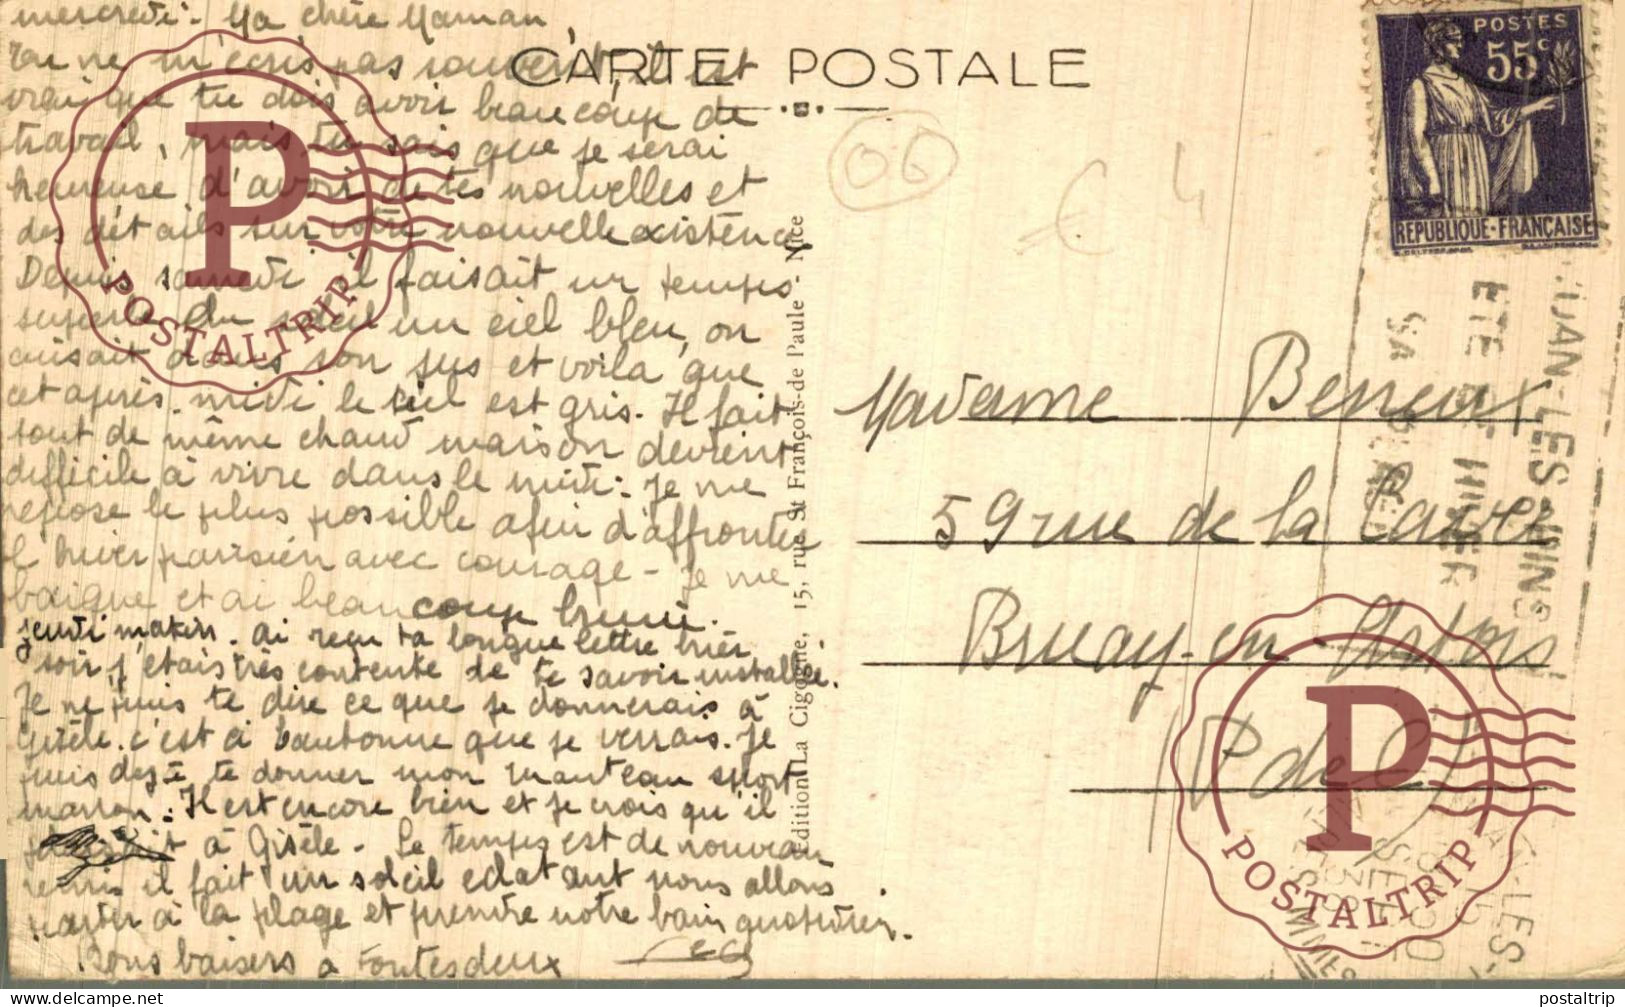 mercredi. Ma chère Maman,
Tu ne m'écris pas souvent, il est
vrai que tu dois avoir beaucoup de
travail, mais tu sais que je serai
heureuse d'avoir de tes nouvelles et
des détails sur votre nouvelle existence
Depuis samedi il faisait un temps
superbe du soleil un ciel bleu, on
cuisait dans son jus et voila que
cet après-midi le ciel est gris. Il fait
tout de même chaud maison devient
difficile à vivre dans le midi. Je me
repose le plus possible afin d'affronter
l'hiver parisien avec courage - Je me
baigne et ai beaucoup bruni.
jeudi matin. ai reçu ta longue lettre hier
soir, j'étais très contente de te savoir installée.
Je ne puis te dire ce que je donnerais à
Gisèle. c'est à l'automne que je verrais. Je
puis déjà te donner mon manteau sport
marron. Il est encore bien et je crois qu'il
à Gisèle. Le temps est de nouveau
remis il fait un soleil eclatant nous allons
partir à la plage et prendre notre bain quotidien.
Bons baisers à toutes deux
CARTE POSTALE
06
€ 4
Edition La Cigogne, 15, rue St François-de Paule - Nice
POSTES
55c
REPUBLIQUE-FRANÇAISE
JUAN-LES-PINS
ETE HIVER
SA
Madame Beneux
59 rue de la
Bruay-en-Artois
P de C
P
POSTALTRIP
P
POSTALTRIP
postaltrip
delcampe.net